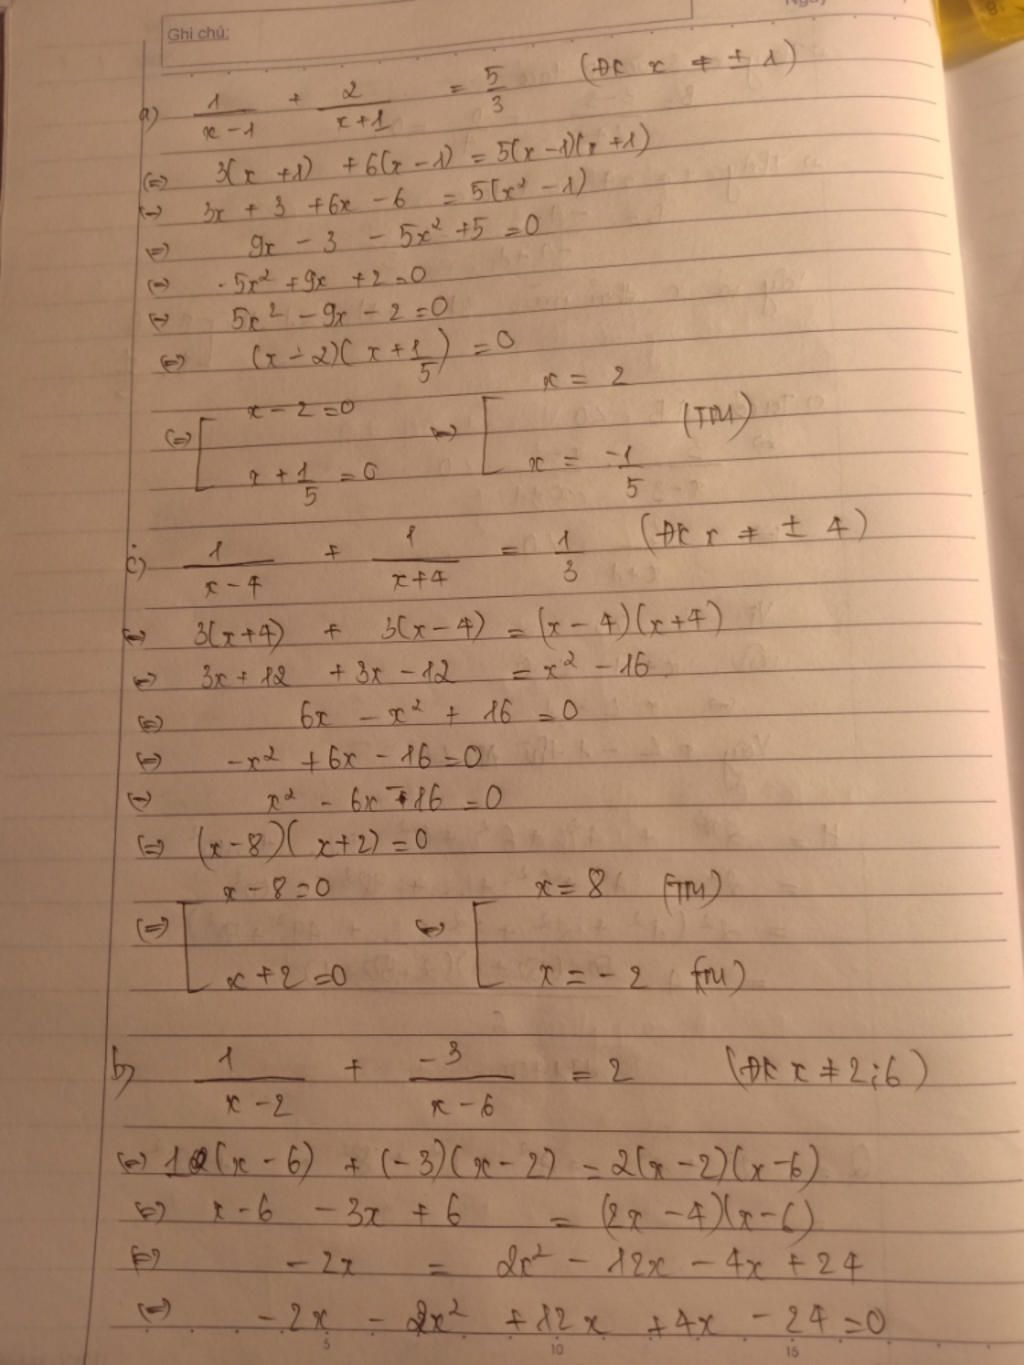 Ghi chú:
a) 1/(x-1) + 2/(x+1) = 5/3 (ĐK x ≠ ± 1)
(=) 3(x+1) + 6(x-1) = 5(x-1)(x+1)
(=) 3x + 3 + 6x - 6 = 5(x² - 1)
(=) 9x - 3 - 5x² + 5 = 0
(=) -5x² + 9x + 2 = 0
(=) 5x² - 9x - 2 = 0
(=) (x-2)(x + 1/5) = 0
(=) [ x - 2 = 0 (=) [ x = 2
x + 1/5 = 0 x = -1/5 (TM)
c) 1/(x-4) + 1/(x+4) = 1/3 (ĐK x ≠ ± 4)
(=) 3(x+4) + 3(x-4) = (x-4)(x+4)
(=) 3x + 12 + 3x - 12 = x² - 16
(=) 6x - x² + 16 = 0
(=) -x² + 6x - 16 = 0
(=) x² - 6x + 16 = 0
(=) (x-8)(x+2) = 0
(=) [ x - 8 = 0 (=) [ x = 8 (TM)
x + 2 = 0 x = -2 (TM)
b) 1/(x-2) + -3/(x-6) = 2 (ĐK x ≠ 2; 6)
(=) 1(x-6) + (-3)(x-2) = 2(x-2)(x-6)
(=) x - 6 - 3x + 6 = (2x - 4)(x-6)
(=) -2x = 2x² - 12x - 4x + 24
(=) -2x - 2x² + 12x + 4x - 24 = 0
5 10 15